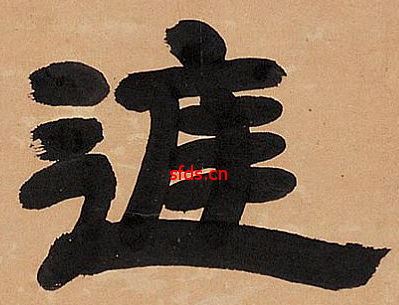 進
sfds.cn